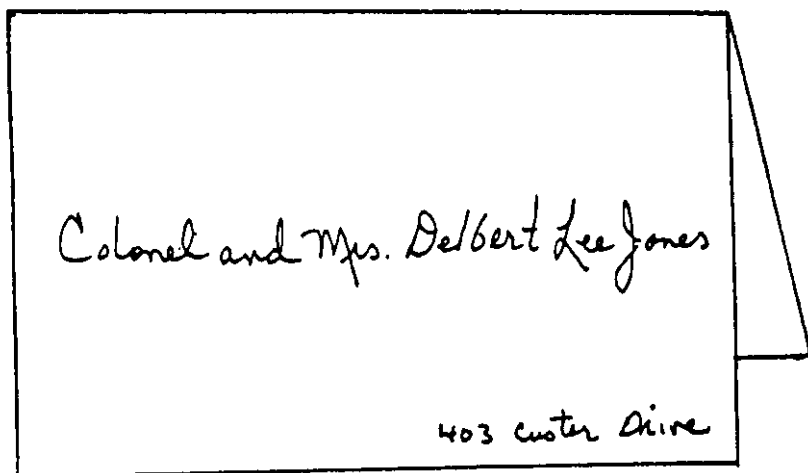 Colonel and Mrs. Delbert Lee Jones
403 Custer Drive